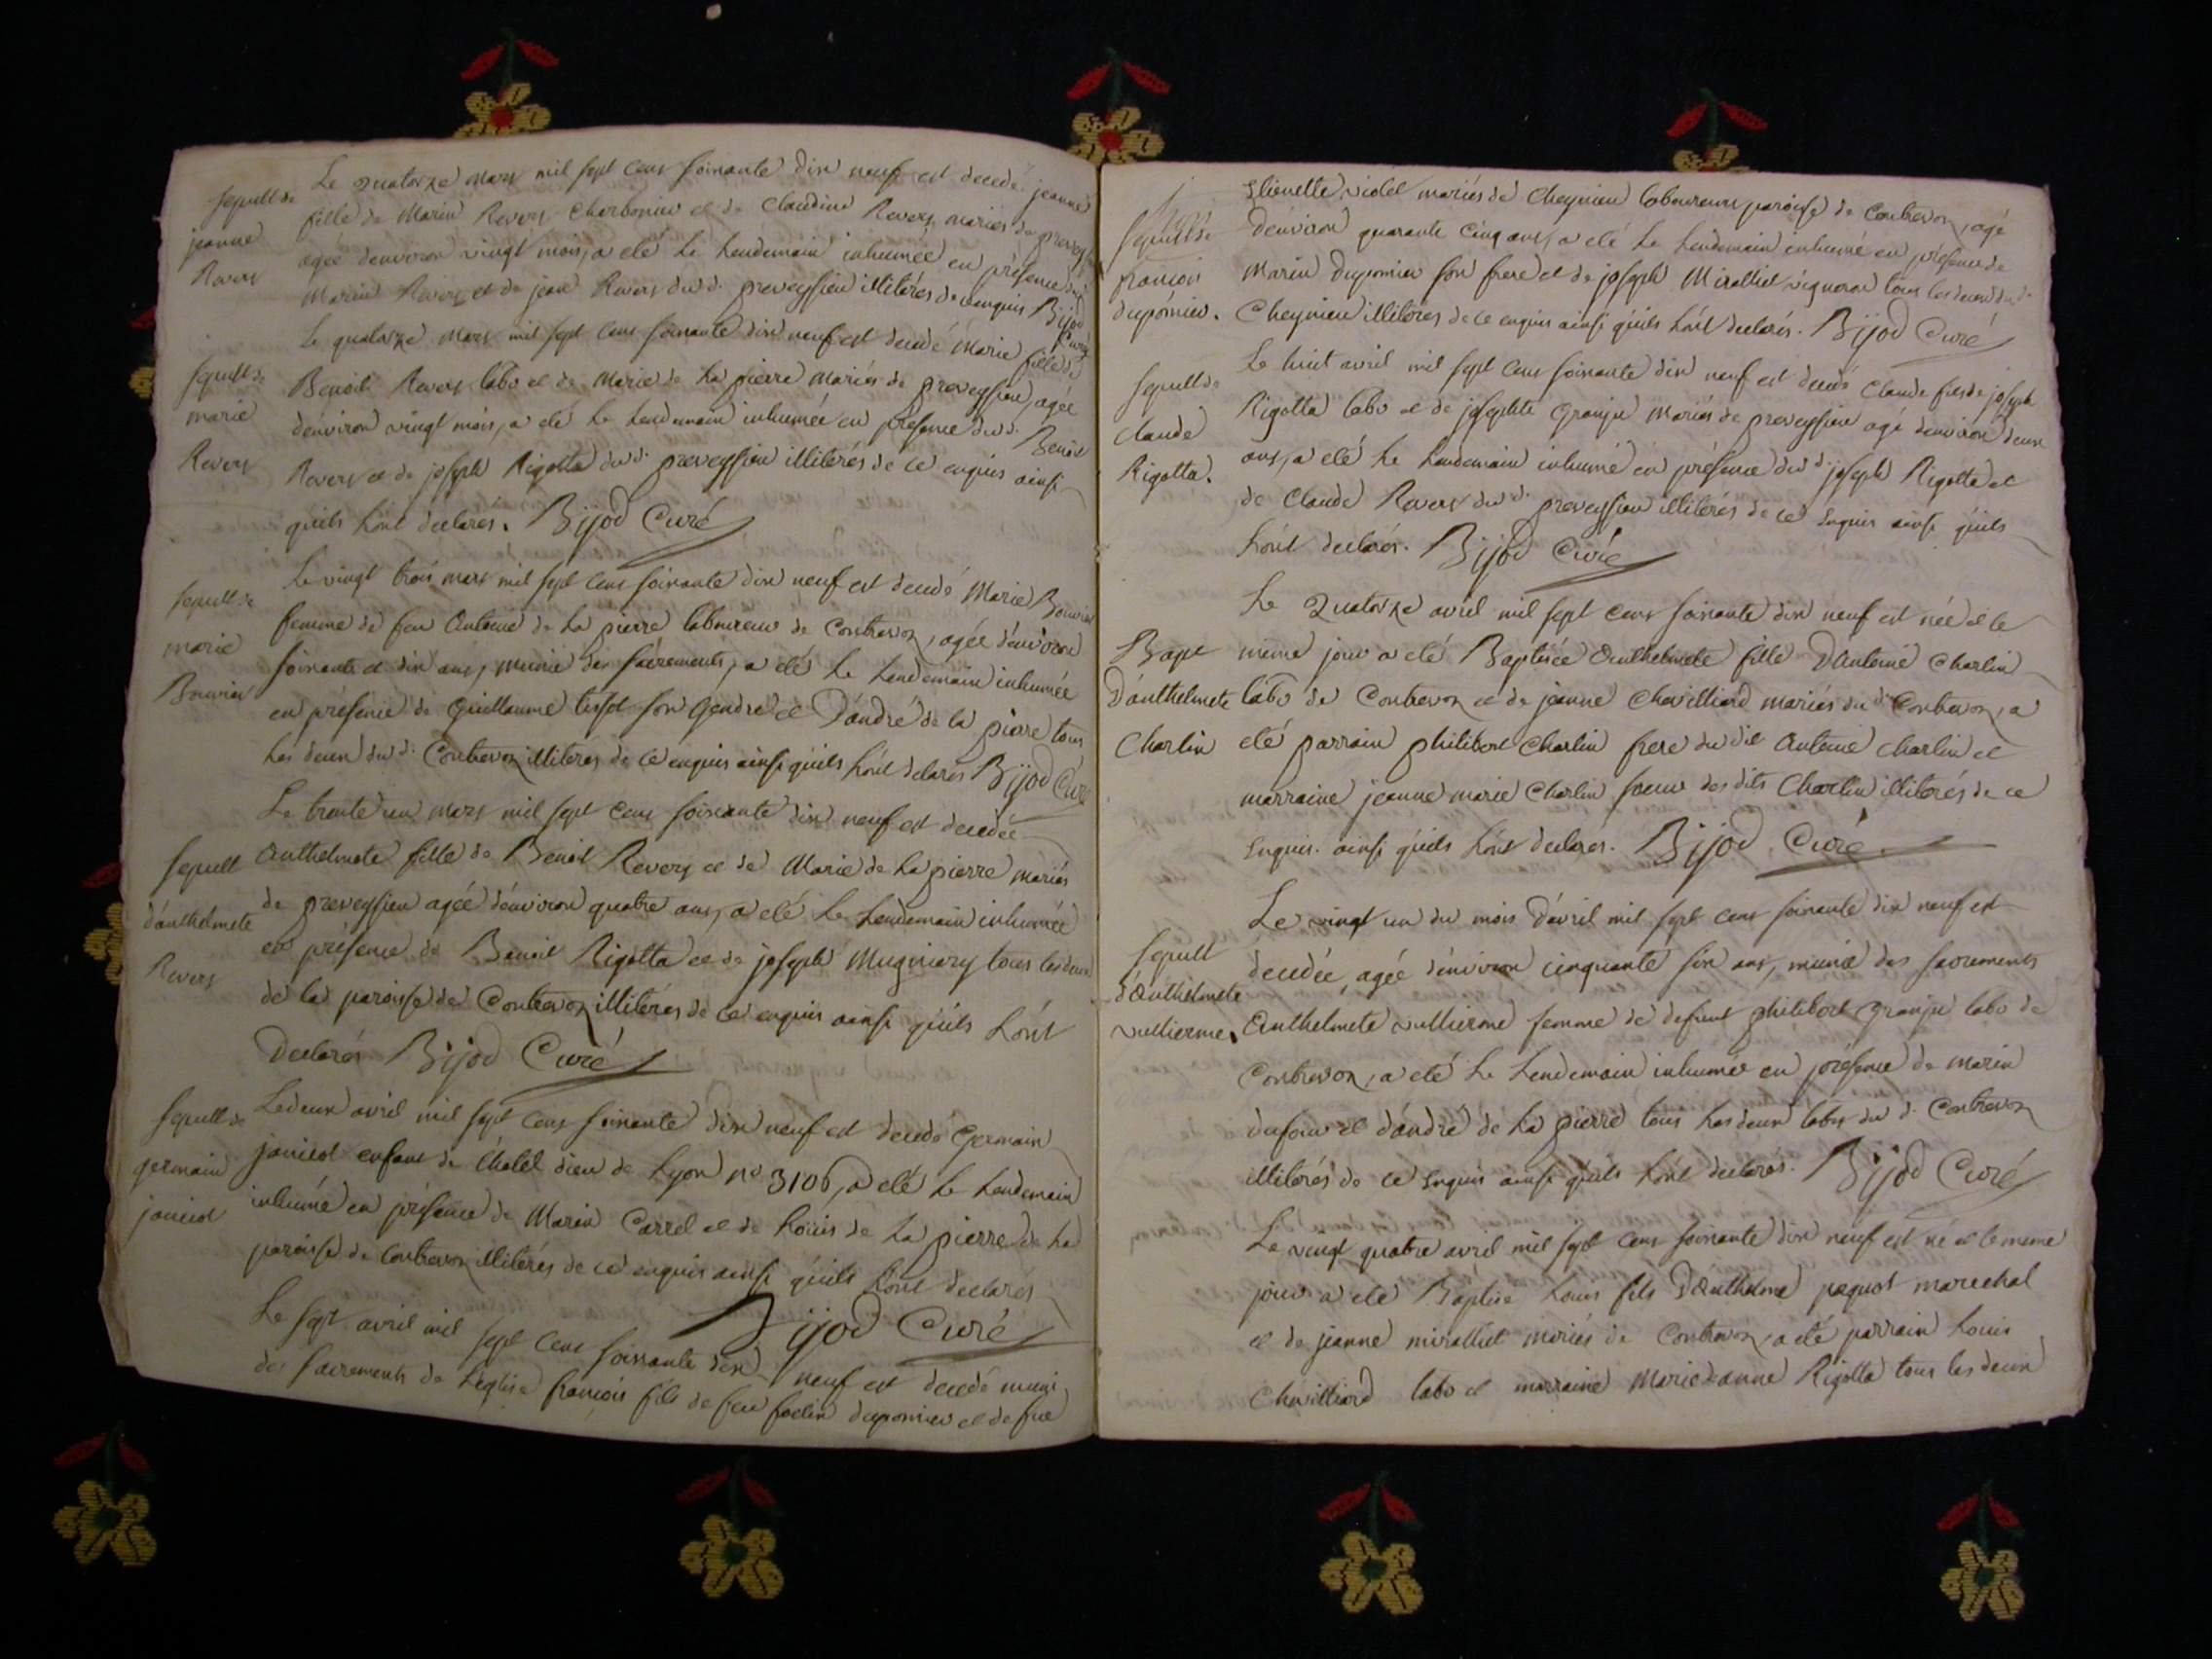 Le quatorze mars mil sept cens soixante dix neuf est decedé jeanne
sepult de
jeanne
Revers
fille de Marin Revers Charbonier et de Claudine Revers mariés de preveyssieu
agée d'environ vingt mois, a eté le lendemain inhumée en présence dud.
Marin Revers et de jean Revers dud. preveyssieu illiterés de ce enquis Bijod
Curé
Le quatorze mars mil sept cens soixante dix neuf est decedé Marie fille de
sepult de
marie
Revers
Benoit Revers labr et de Marie de la pierre mariés de preveyssieu, agée
d'environ vingt mois, a eté le lendemain inhumée en présence dud. Benoit
Revers et de joseph Rigotta dud. preveyssieu illiterés de ce enquis ainsi
qu'ils l'ont declarés. Bijod Curé
Le vingt trois mars mil sept cens soixante dix neuf est decedé Marie Bouvier
sepult de
marie
Bouvier
femme de feu Antoine de la pierre laboureur de Contrevoz, agée d'environ
soixante et dix ans, munie des sacrements, a eté le lendemain inhumée
en présence de Guillaume tissot son gendre et D'andré de la pierre tous
les deux dud. Contrevoz illiterés de ce enquis ainsi qu'ils l'ont declarés Bijod Curé
Le trente un mars mil sept cens soixante dix neuf est decedée
sepult
d'anthelmete
Revers
Anthelmete fille de Benoit Revers et de Marie de la pierre mariés
de preveyssieu agée d'environ quatre ans, a eté le lendemain inhumée
en présence de Benoit Rigotta et de joseph Mugniery tous les deux
de la paroisse de Contrevoz illiterés de ce enquis ainsi qu'ils l'ont
Declarés Bijod Curé
Le deux avril mil sept cens soixante dix neuf est decedé Germain
sepult de
germain
janiot
janiot enfant de l'hotel dieu de Lyon no 3106, a eté le lendemain
inhumé en présence de Marin Carrel et de Louis de la pierre de la
paroisse de Contrevoz illiterés de ce enquis ainsi qu'ils l'ont declarés
Bijod Curé
Le sept avril mil sept cens soixante dix neuf est decedé muni
des sacrements de l'eglise françois fils de feu dupomier et de fue
Etienette violet mariés de Cheynieu laboureurs paroisse de Contrevoz, agé
sepult de
françois
dupomier.
d'environ quarante cinq ans, a eté le lendemain inhumé en présence de
Marin Dupomier son frere et de joseph Miralliet vigneron tous les deux dud.
Cheynieu illiterés de ce enquis ainsi qu'ils l'ont declarés. Bijod Curé
Le huit avril mil sept cens soixante dix neuf est decedé Claude fils de joseph
sepult de
claude
Rigotta.
Rigotta labr et de josephte Granju mariés de preveyssieu agé d'environ deux
ans, a eté le lendemain inhumé en présence dud. joseph Rigotta et
de Claude Revers dud. preveyssieu illiterés de ce enquis ainsi qu'ils
l'ont declarés. Bijod Curé
Le Quatorze avril mil sept cens soixante dix neuf est née et le
Bapt
D'anthelmete
Charlin
même jour a eté Baptisée Anthelmete fille D'Antoine Charlin
labr de Contrevoz et de jeanne Chevilliard mariés dud. Contrevoz, a
eté parrain philibert Charlin frere dudit Antoine Charlin et
marraine jeanne marie Charlin soeur des dits Charlin illiterés de ce
Enquis. ainsi qu'ils l'ont declarés. Bijod Curé.
Le vingt un du mois d'avril mil sept cens soixante dix neuf est
sepult
d'Anthelmete
vullierme.
decedée, agée d'environ cinquante six ans, munie des sacrements
Anthelmete vullierme femme de defunt philibert Granju labr de
Contrevoz, a eté le lendemain inhumée en présence de Marin
dufour et d'andré de la pierre tous les deux labrs dud. Contrevoz
illiterés de ce Enquis ainsi qu'ils l'ont declarés. Bijod Curé
Le vingt quatre avril mil sept cens soixante dix neuf est né et le meme
jour a eté Baptisé Louis fils D'Anthelme paquot marechal
et de jeanne miralliet mariés de Contrevoz, a eté parrain Louis
Chevilliard labr et marraine Marie anne Rigotta tous les deux